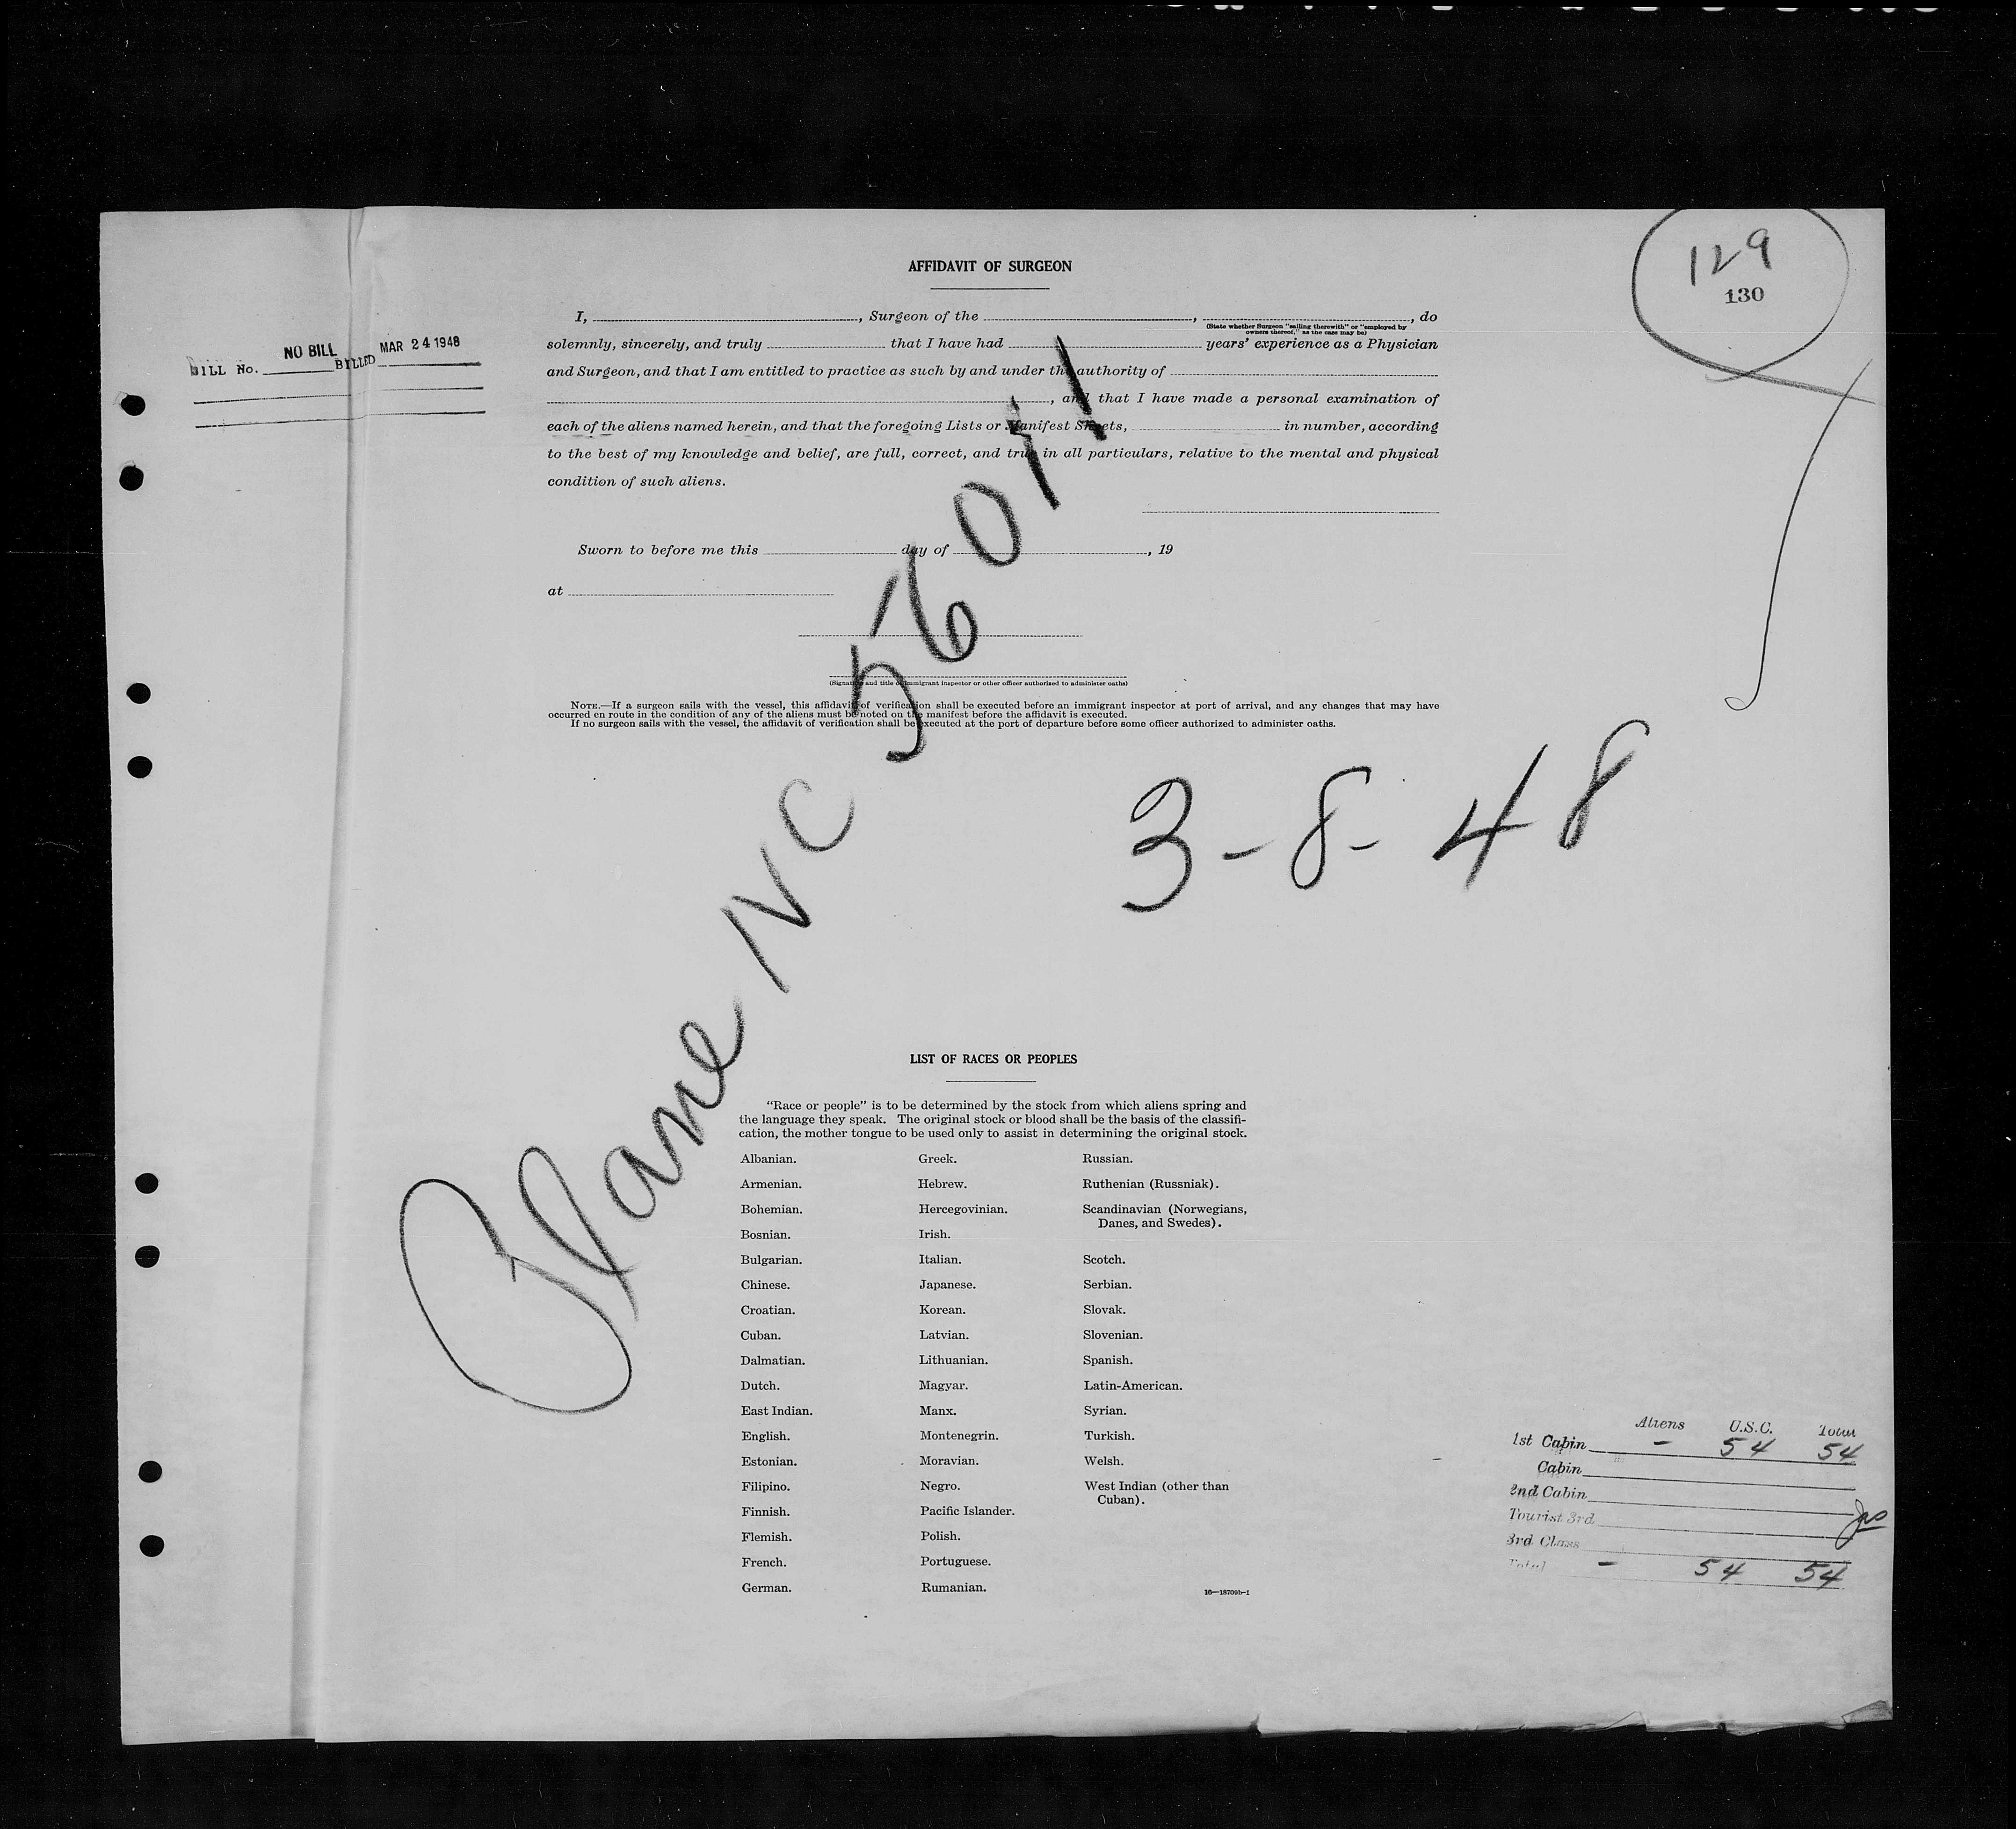 AFFIDAVIT OF SURGEON
129
130
I, , Surgeon of the , , do
(State whether Surgeon "sailing therewith" or "employed by
owners thereof," as the case may be)
solemnly, sincerely, and truly that I have had years' experience as a Physician
and Surgeon, and that I am entitled to practice as such by and under the authority of
, and that I have made a personal examination of
each of the aliens named herein, and that the foregoing Lists or Manifest Sheets, in number, according
to the best of my knowledge and belief, are full, correct, and true in all particulars, relative to the mental and physical
condition of such aliens.
BILL No. NO BILL BILLED MAR 24 1948
Sworn to before me this day of , 19
at
(Signature and title of immigrant inspector or other officer authorized to administer oaths)
NOTE.—If a surgeon sails with the vessel, this affidavit of verification shall be executed before an immigrant inspector at port of arrival, and any changes that may have
occurred en route in the condition of any of the aliens must be noted on the manifest before the affidavit is executed.
If no surgeon sails with the vessel, the affidavit of verification shall be executed at the port of departure before some officer authorized to administer oaths.
Plane NC 56011
3-8-48
LIST OF RACES OR PEOPLES
"Race or people" is to be determined by the stock from which aliens spring and
the language they speak. The original stock or blood shall be the basis of the classifi-
cation, the mother tongue to be used only to assist in determining the original stock.
Albanian. Greek. Russian.
Armenian. Hebrew. Ruthenian (Russniak).
Bohemian. Hercegovinian. Scandinavian (Norwegians,
Danes, and Swedes).
Bosnian. Irish.
Bulgarian. Italian. Scotch.
Chinese. Japanese. Serbian.
Croatian. Korean. Slovak.
Cuban. Latvian. Slovenian.
Dalmatian. Lithuanian. Spanish.
Dutch. Magyar. Latin-American.
East Indian. Manx. Syrian.
English. Montenegrin. Turkish.
Estonian. Moravian. Welsh.
Filipino. Negro. West Indian (other than
Cuban).
Finnish. Pacific Islander.
Flemish. Polish.
French. Portuguese.
German. Rumanian.
16—18709b-1
Aliens U.S.C. Total
1st Cabin - 54 54
Cabin
2nd Cabin
Tourist 3rd
3rd Class
Total - 54 54